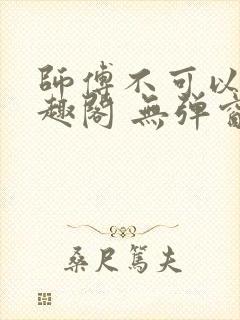 師傅不可以
趣閣 無彈
桑尺篤夫